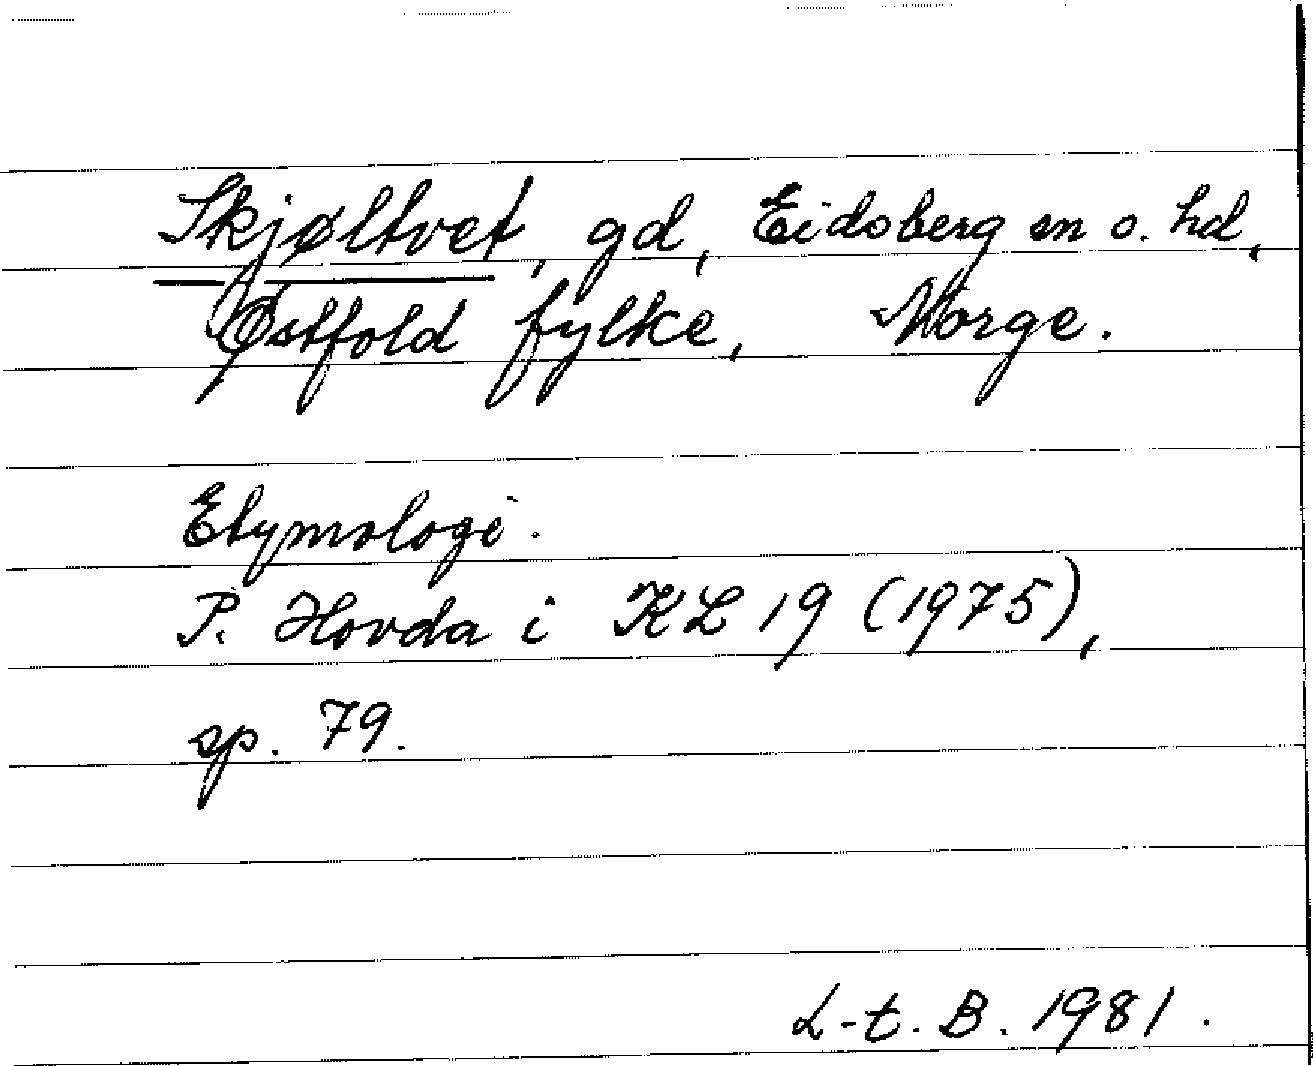 Skjøltvet, gd, Eidsberg sn o. hd,
Østfold fylke, Norge.
Etymologi.
P. Hovda i KL 19 (1975),
sp. 79.
L-t. B. 1981.